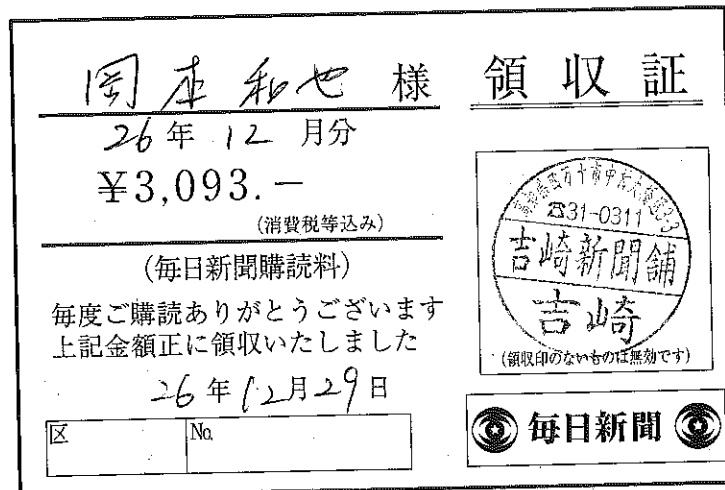 岡本和也 様
領収証
26年12月分
¥3,093.−
(消費税等込み)
(毎日新聞購読料)
毎度ご購読ありがとうございます
上記金額正に領収いたしました
26年12月29日
区 No.
☎31-0311
吉崎新聞舗
吉崎
(領収印のないものは無効です)
毎日新聞